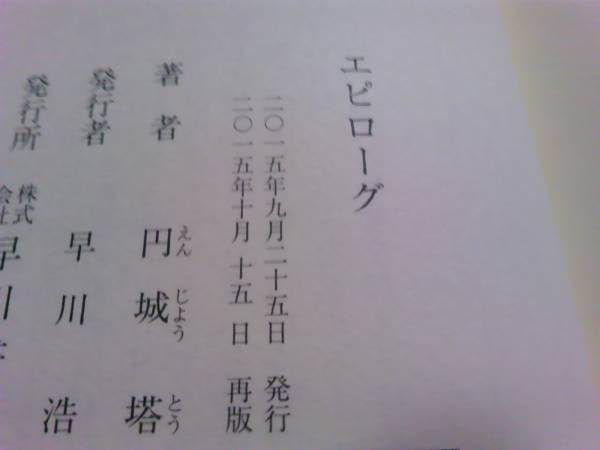 エピローグ
二〇一五年九月二十五日 発行
二〇一五年十月十五日 再版
著者 円城塔
えん じよう とう
発行者 早川 浩
発行所 株式会社 早川